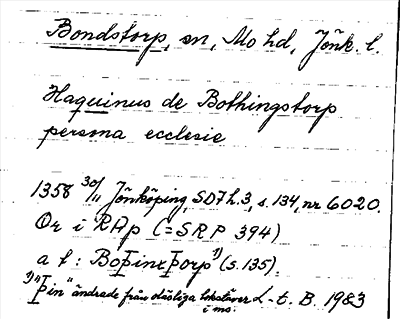 Bondstorp, sn, Mo hd, Jönk. l.
Haquinus de Bothingstorp
persona ecclesie
1358 30/11 Jönköping, SD7 h.3, s. 134, nr 6020.
Or i RAp (= SRP 394)
a l: Boþinxþorp 1) (s. 135).
1) "þin" ändrade från otydliga bokstäver L-t. B. 1983
i ms.